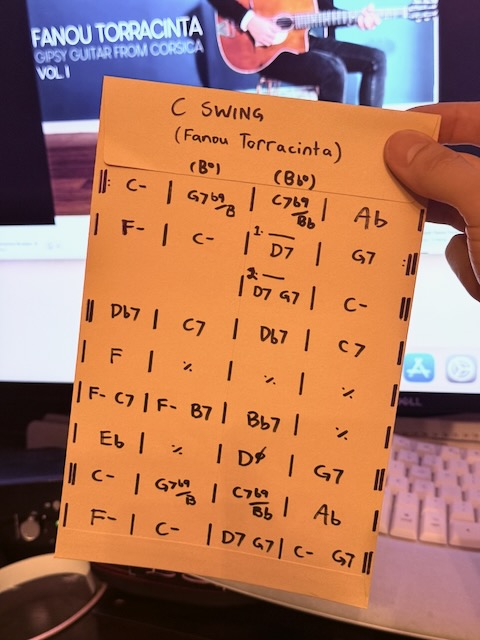 FANOU TORRACINTA
GIPSY GUITAR FROM CORSICA
VOL. I
C SWING
(Fanou Torracinta)
(B°) (Bb°)
||: C- | G7b9/B | C7b9/Bb | Ab |
| F- | C- | 1. D7 | G7 :||
2. | D7 G7 | C- ||
|| Db7 | C7 | Db7 | C7 |
| F | ٪ | ٪ | ٪ |
| F- C7 | F- B7 | Bb7 | ٪ |
| Eb | ٪ | Dø | G7 ||
|| C- | G7b9/B | C7b9/Bb | Ab |
| F- | C- | D7 G7 | C- G7 ||
DELL